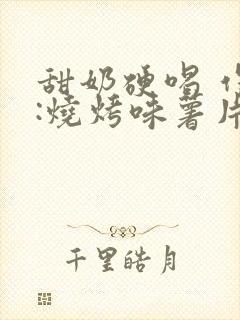 甜奶硬唱
:燒烤味薯片
千里皓月